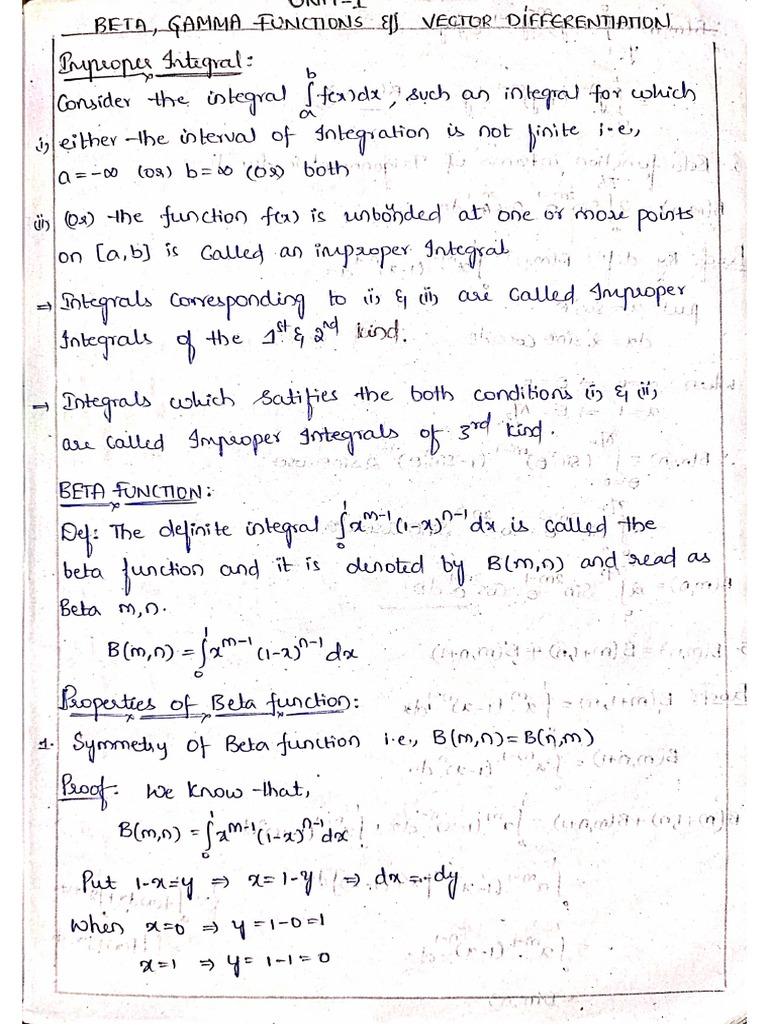 UNIT-1
BETA, GAMMA FUNCTIONS & VECTOR DIFFERENTIATION
Improper Integral:
Consider the integral ∫ₐᵇ f(x)dx, such an integral for which
i) either the interval of Integration is not finite i.e.,
a = -∞ (or) b = ∞ (or) both
(ii) (or) the function f(x) is unbonded at one or more points
on [a,b] is called an improper Integral
⇒ Integrals corresponding to (i) & (ii) are called Improper
Integrals of the 1st & 2nd kind.
→ Integrals which satifies the both conditions (i) & (ii)
are called Improper Integrals of 3rd kind.
BETA FUNCTION:
Def: The definite integral ∫₀¹ x^(m-1) (1-x)^(n-1) dx is called the
beta function and it is denoted by B(m,n) and read as
Beta m,n.
B(m,n) = ∫₀¹ x^(m-1) (1-x)^(n-1) dx
Properties of Beta function:
1. Symmetry of Beta function i.e., B(m,n) = B(n,m)
Proof: We know that,
B(m,n) = ∫₀¹ x^(m-1) (1-x)^(n-1) dx
Put 1-x=y ⇒ x = 1-y ⇒ dx = -dy
When x=0 ⇒ y = 1-0 = 1
x=1 ⇒ y = 1-1 = 0